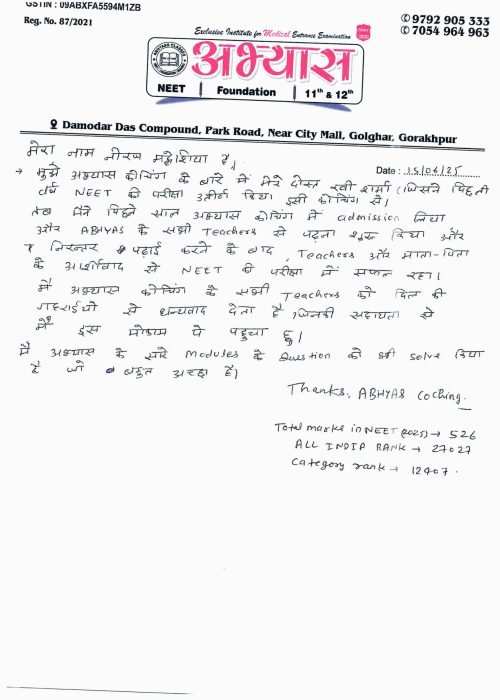 GSTIN : 09ABXFA5594M1ZB
Reg. No. 87/2021
Exclusive Institute for Medical Entrance Examination
✆ 9792 905 333
✆ 7054 964 963
अभ्यास
NEET | Foundation | 11th & 12th
Damodar Das Compound, Park Road, Near City Mall, Golghar, Gorakhpur
मेरा नाम नीरज मद्धेशिया है।
Date : 15/06/25
→ मुझे अभ्यास कोचिंग के बारे में मेरे दोस्त रवी शर्मा (जिसने पिछली
वर्ष NEET की परीक्षा उत्तीर्ण किया इसी कोचिंग से।
तब मैंने पिछले साल अभ्यास कोचिंग में admission लिया
और ABHYAS के सभी Teachers से पढ़ना शुरू किया और
निरन्तर पढाई करने के बाद, Teachers और माता-पिता
के आर्शीवाद से NEET की परीक्षा में सफल रहा।
मैं अभ्यास कोचिंग के सभी Teachers को दिल की
गहराईयो से धन्यवाद देता हूँ जिनकी सहायता से
मैं इस मोकाम पे पहुचा हु।
मैं अभ्यास के सारे Modules के Question को भी solve किया
है जो बहुत अच्छा है।
Thanks, ABHYAS Coching.
Total marks in NEET (2025) → 526
ALL INDIA RANK → 27027
Category rank → 12407.